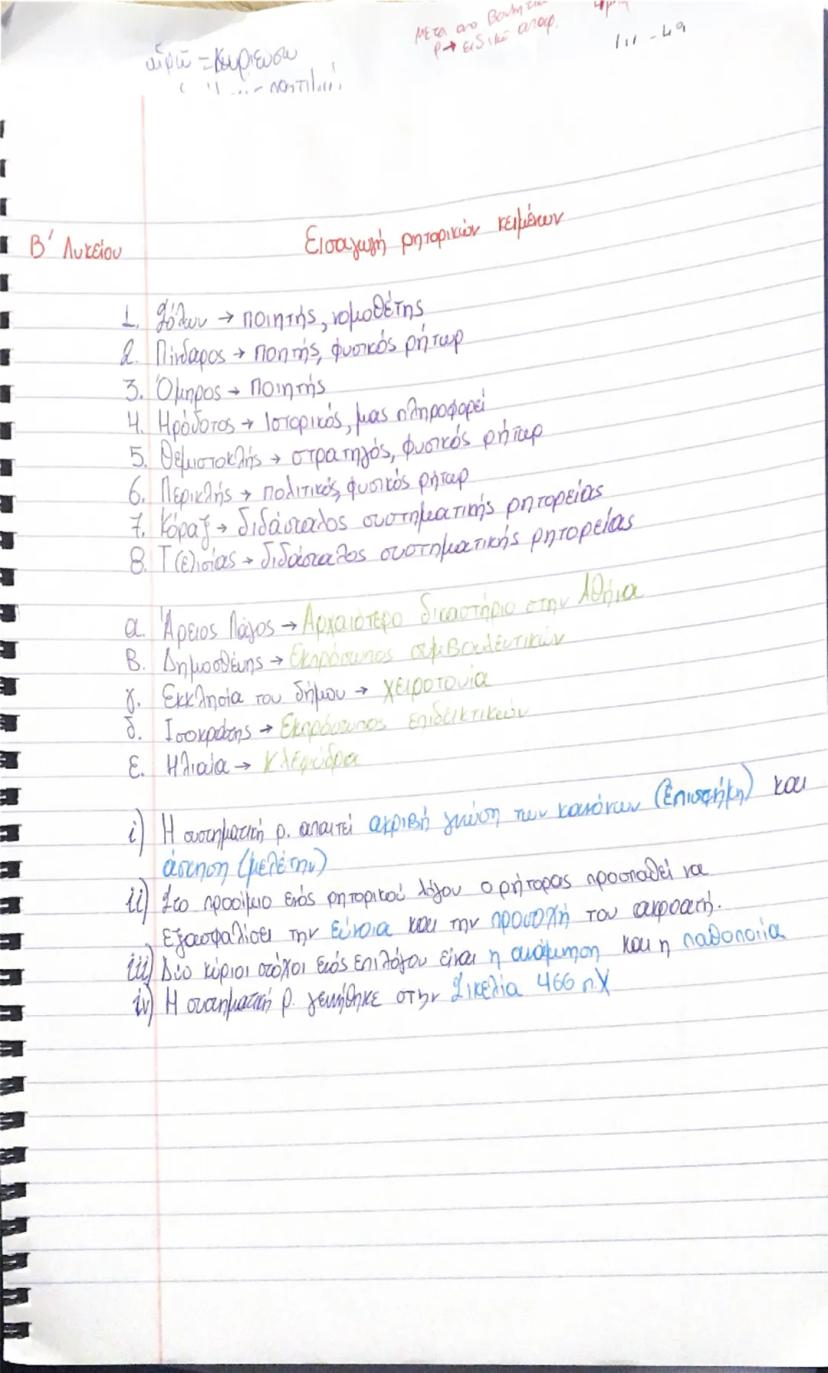 μετα απο βουλητικ
ρ → ειδικό απαρ.
αἱρῶ = κυριεύσω
III - 49
Β΄ Λυκείου
Εισαγωγή ρητορικών κειμένων
1. Σόλων → ποιητής, νομοθέτης
2. Πίνδαρος → ποητής, φυσικός ρήτωρ
3. Όμηρος → ποιητής
4. Ηρόδοτος → Ιστορικός, μας πληροφορεί
5. Θεμιστοκλής → στρατηγός, φυσικός ρήτωρ
6. Περικλής → πολιτικός, φυσικός ρήτωρ
7. Κόραξ → διδάσκαλος συστηματικής ρητορείας
8. Τ(ε)ισίας → διδάσκαλος συστηματικής ρητορείας
α. Άρειος Πάγος → Αρχαιότερο δικαστήριο στην Αθήνα
Β. Δημοσθένης → Εκπρόσωπος συμβουλευτικών
γ. Εκκλησία του δήμου → χειροτονία
δ. Ισοκράτης → Εκπρόσωπος επιδεικτικών
ε. Ηλιαία → Κλεψύδρα
i) Η συστηματική ρ. απαιτεί ακριβή γνώση των κανόνων (Επιστήμη) και
άσκηση (μελέτην)
ii) Στο προοίμιο ενός ρητορικού λόγου ο ρήτορας προσπαθεί να
εξασφαλίσει την εύνοια και την προσοχή του ακροατή.
iii) Δύο κύριοι στόχοι ενός επιλόγου είναι η ανάμνηση και η παθοποιία
iv) Η συστηματική ρ. γεννήθηκε στην Σικελία 466 π.Χ